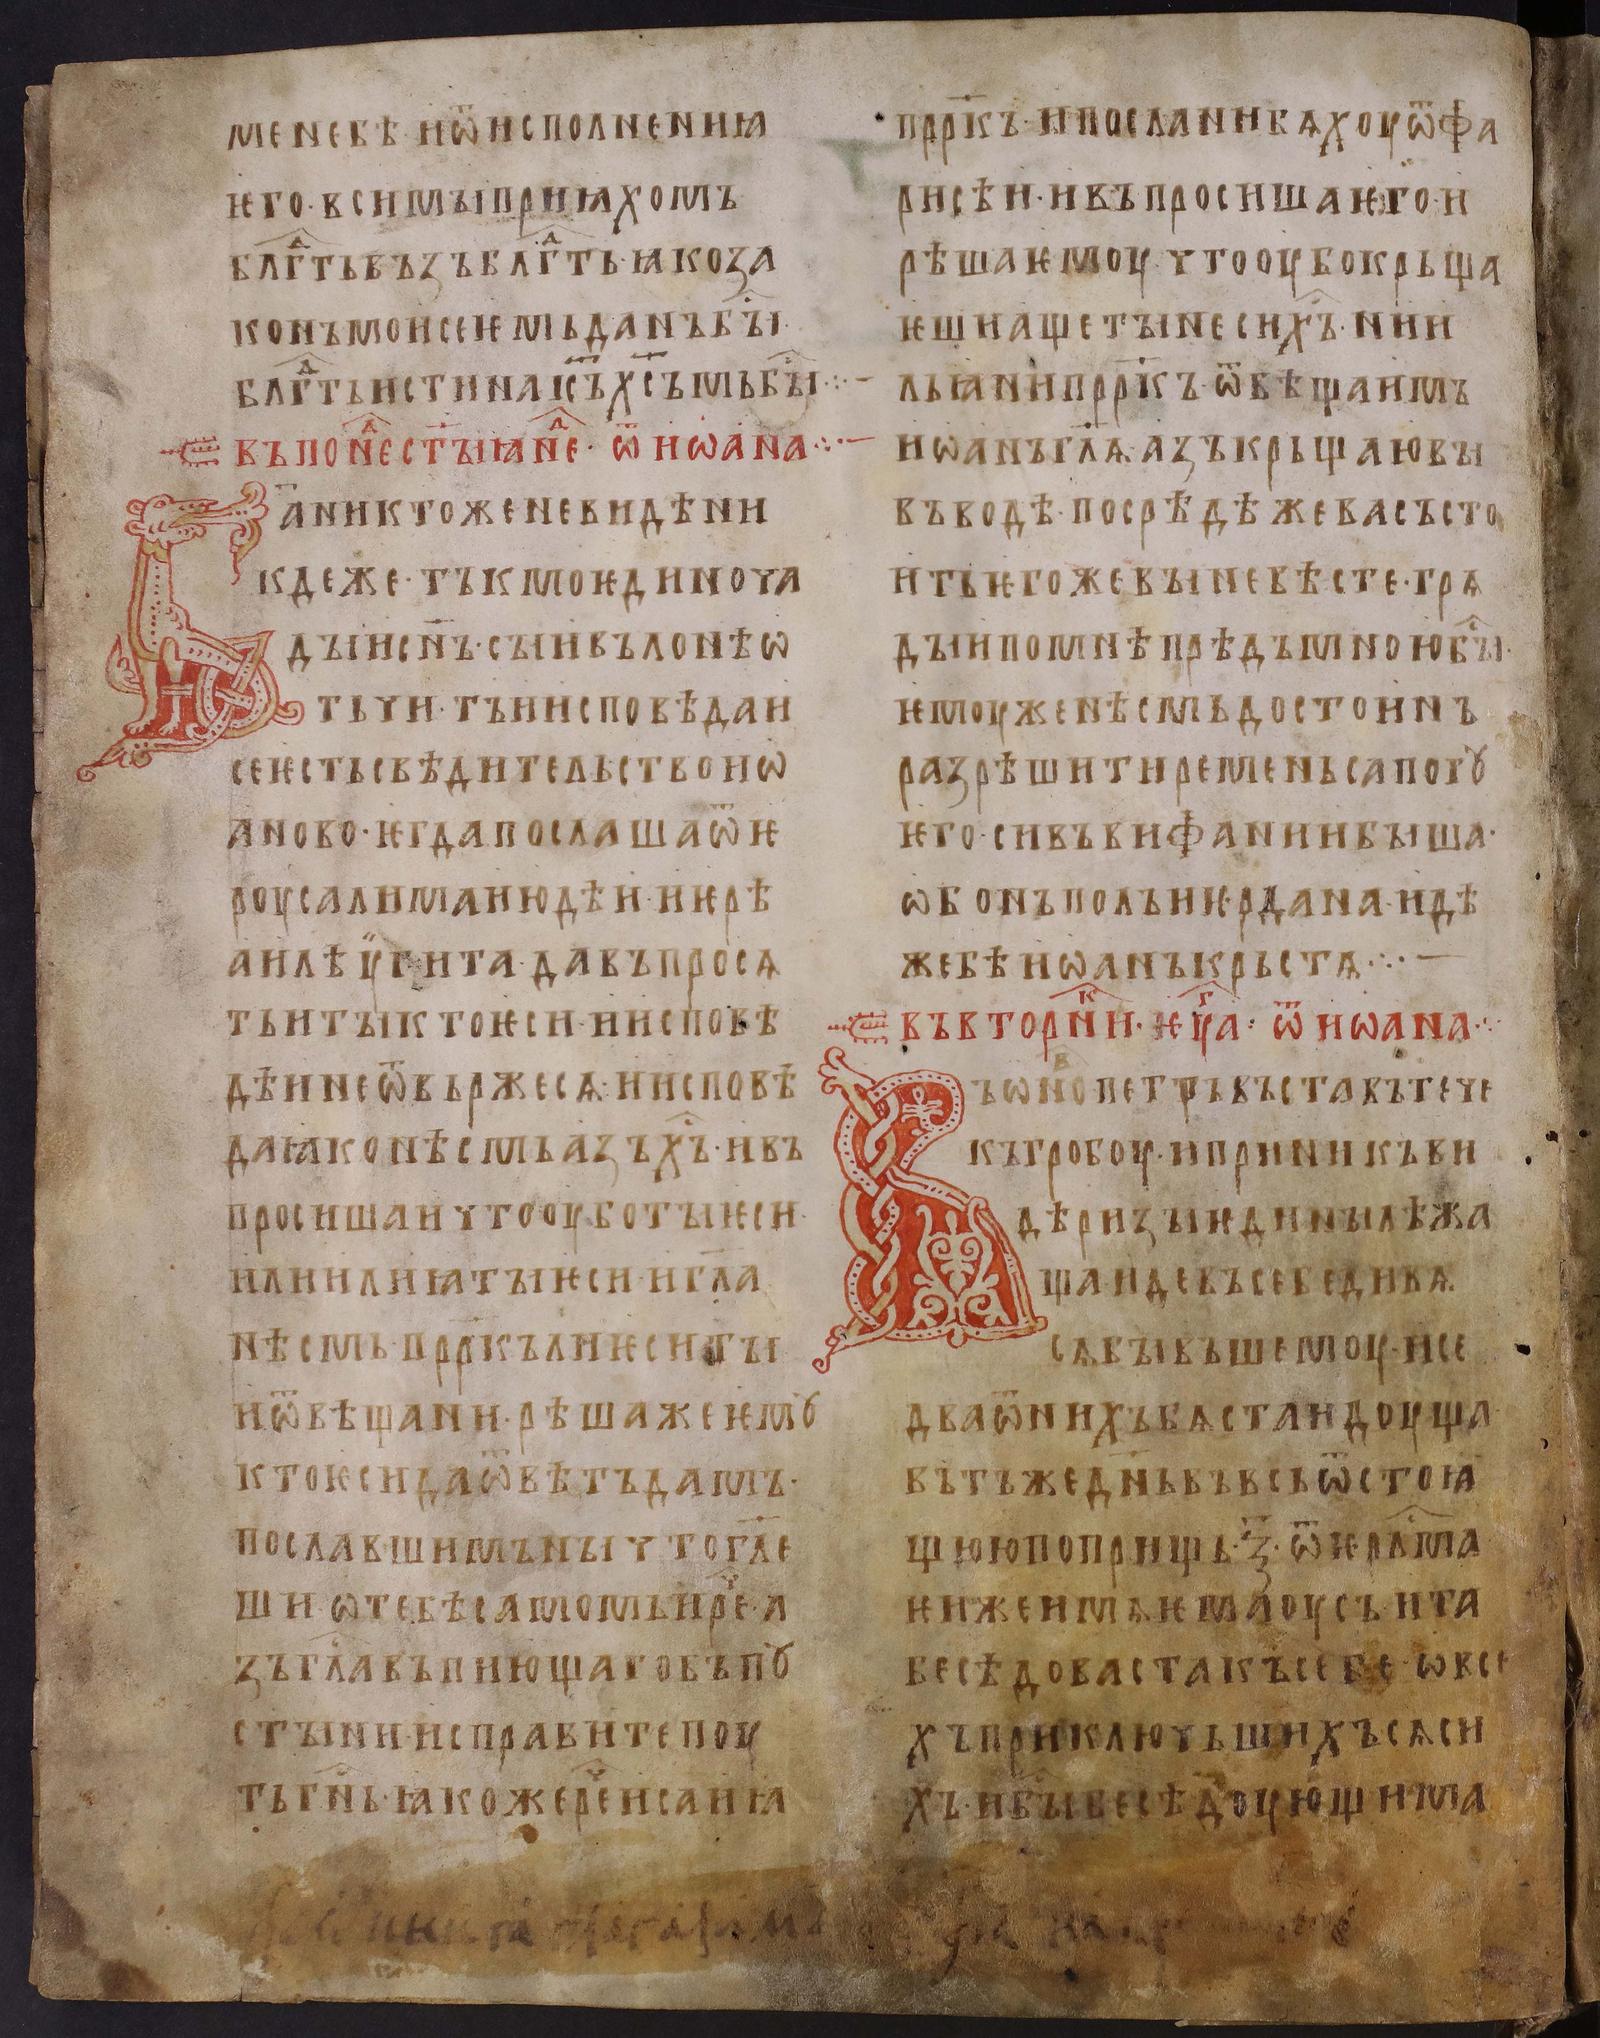 мене бѣ · и ѿ исполнениꙗ
ѥго · вси мꙑ приꙗхомъ
блгⷣть въꙁъ блгⷣть · ꙗко ꙁа
конъ моисеѥмь данъ бꙑⷭ
блгⷣть и стина іс҃ъ х҃съмь бꙑⷭ ·:·—
въ понⷣе ст҃ꙑꙗ нⷣе · ѿ иѡана ·:·—
Б҃а никтоже не видѣ ни
кдеже · тъкмо ѥдиноча
дꙑи сн҃ъ · сꙑи въ лонѣ ѡ
тьчи · тъ и исповѣда и
се ѥсть свѣдительство иѡ
аново · ѥгда послаша ѿ ѥ
роусалима июдѣи · иѥрѣ
а и лѣѵгита · да въпросѧ
ть и тꙑ кто ѥси · и исповѣ
дѣ и не ѿвьржесѧ · и исповѣ
да ꙗко нѣсмь аꙁъ хⷭъ · и въ
просиша и что оубо тꙑ ѥси ·
или илиꙗ тꙑ ѥси · и гл҃а
нѣсмь · прр҃къ ли ѥси тꙑ
и ѿвѣща ни · рѣша же ѥмꙋ
кто ѥси да ѿвѣтъ дамъ ·
пославшимъ нꙑ что гл҃е
ши ѡ тебѣ самомь · и реⷱ · а
ꙁъ гл҃а въпиющаго въ пꙋ
стꙑни · исправите поу
ть гн҃ь · ꙗкоже реⷱ исаиꙗ
прр҃къ · и послании бѧхоу ѿ фа
рисѣи · и въпросиша ѥго · и
рѣша ѥмоу · что оубо крьща
ѥши аще тꙑ нѣси хⷭъ · ни и
льꙗ ни прр҃къ · ѿвѣща имъ
иѡанъ гл҃ѧ · аꙁъ крьщаю вꙑ
въ водѣ · посрѣдѣ же васъ сто
ить ѥгоже вꙑ не вѣсте · грѧ
дꙑи по мнѣ прѣдъ мною бꙑⷭ ·
ѥмоуже нѣсмь достоинъ
раꙁрѣшити ремень сапогꙋ
ѥго · си въ вифании бꙑша ·
ѡб онъ полъ иѥрдана · идѣ
же бѣ иѡанъ крьстѧ ·:·—
въ вторнⷦи · ѥуⷢа · ѿ иѡана ·:
Въ ѡноⷡ петръ въставъ тече
къ гробоу · и приникъ ви
дѣ риꙁꙑ ѥдинꙑ лѣжа
ща · и иде въ себе дивѧ
сѧ бꙑвъшемоу · и се
два ѿ нихъ бѧста идоуща
въ тъже дн҃ь въ вьсь ѿстоꙗ
щюю поприщь · ꙁ҃ · ѿ ѥрⷭлма
ѥиже имѧ ѥмаоусъ · и та
бесѣдоваста къ себе · ѡ всѣ
хъ приключьшихъсѧ си
хъ · и бꙑⷭ бесѣдоующима